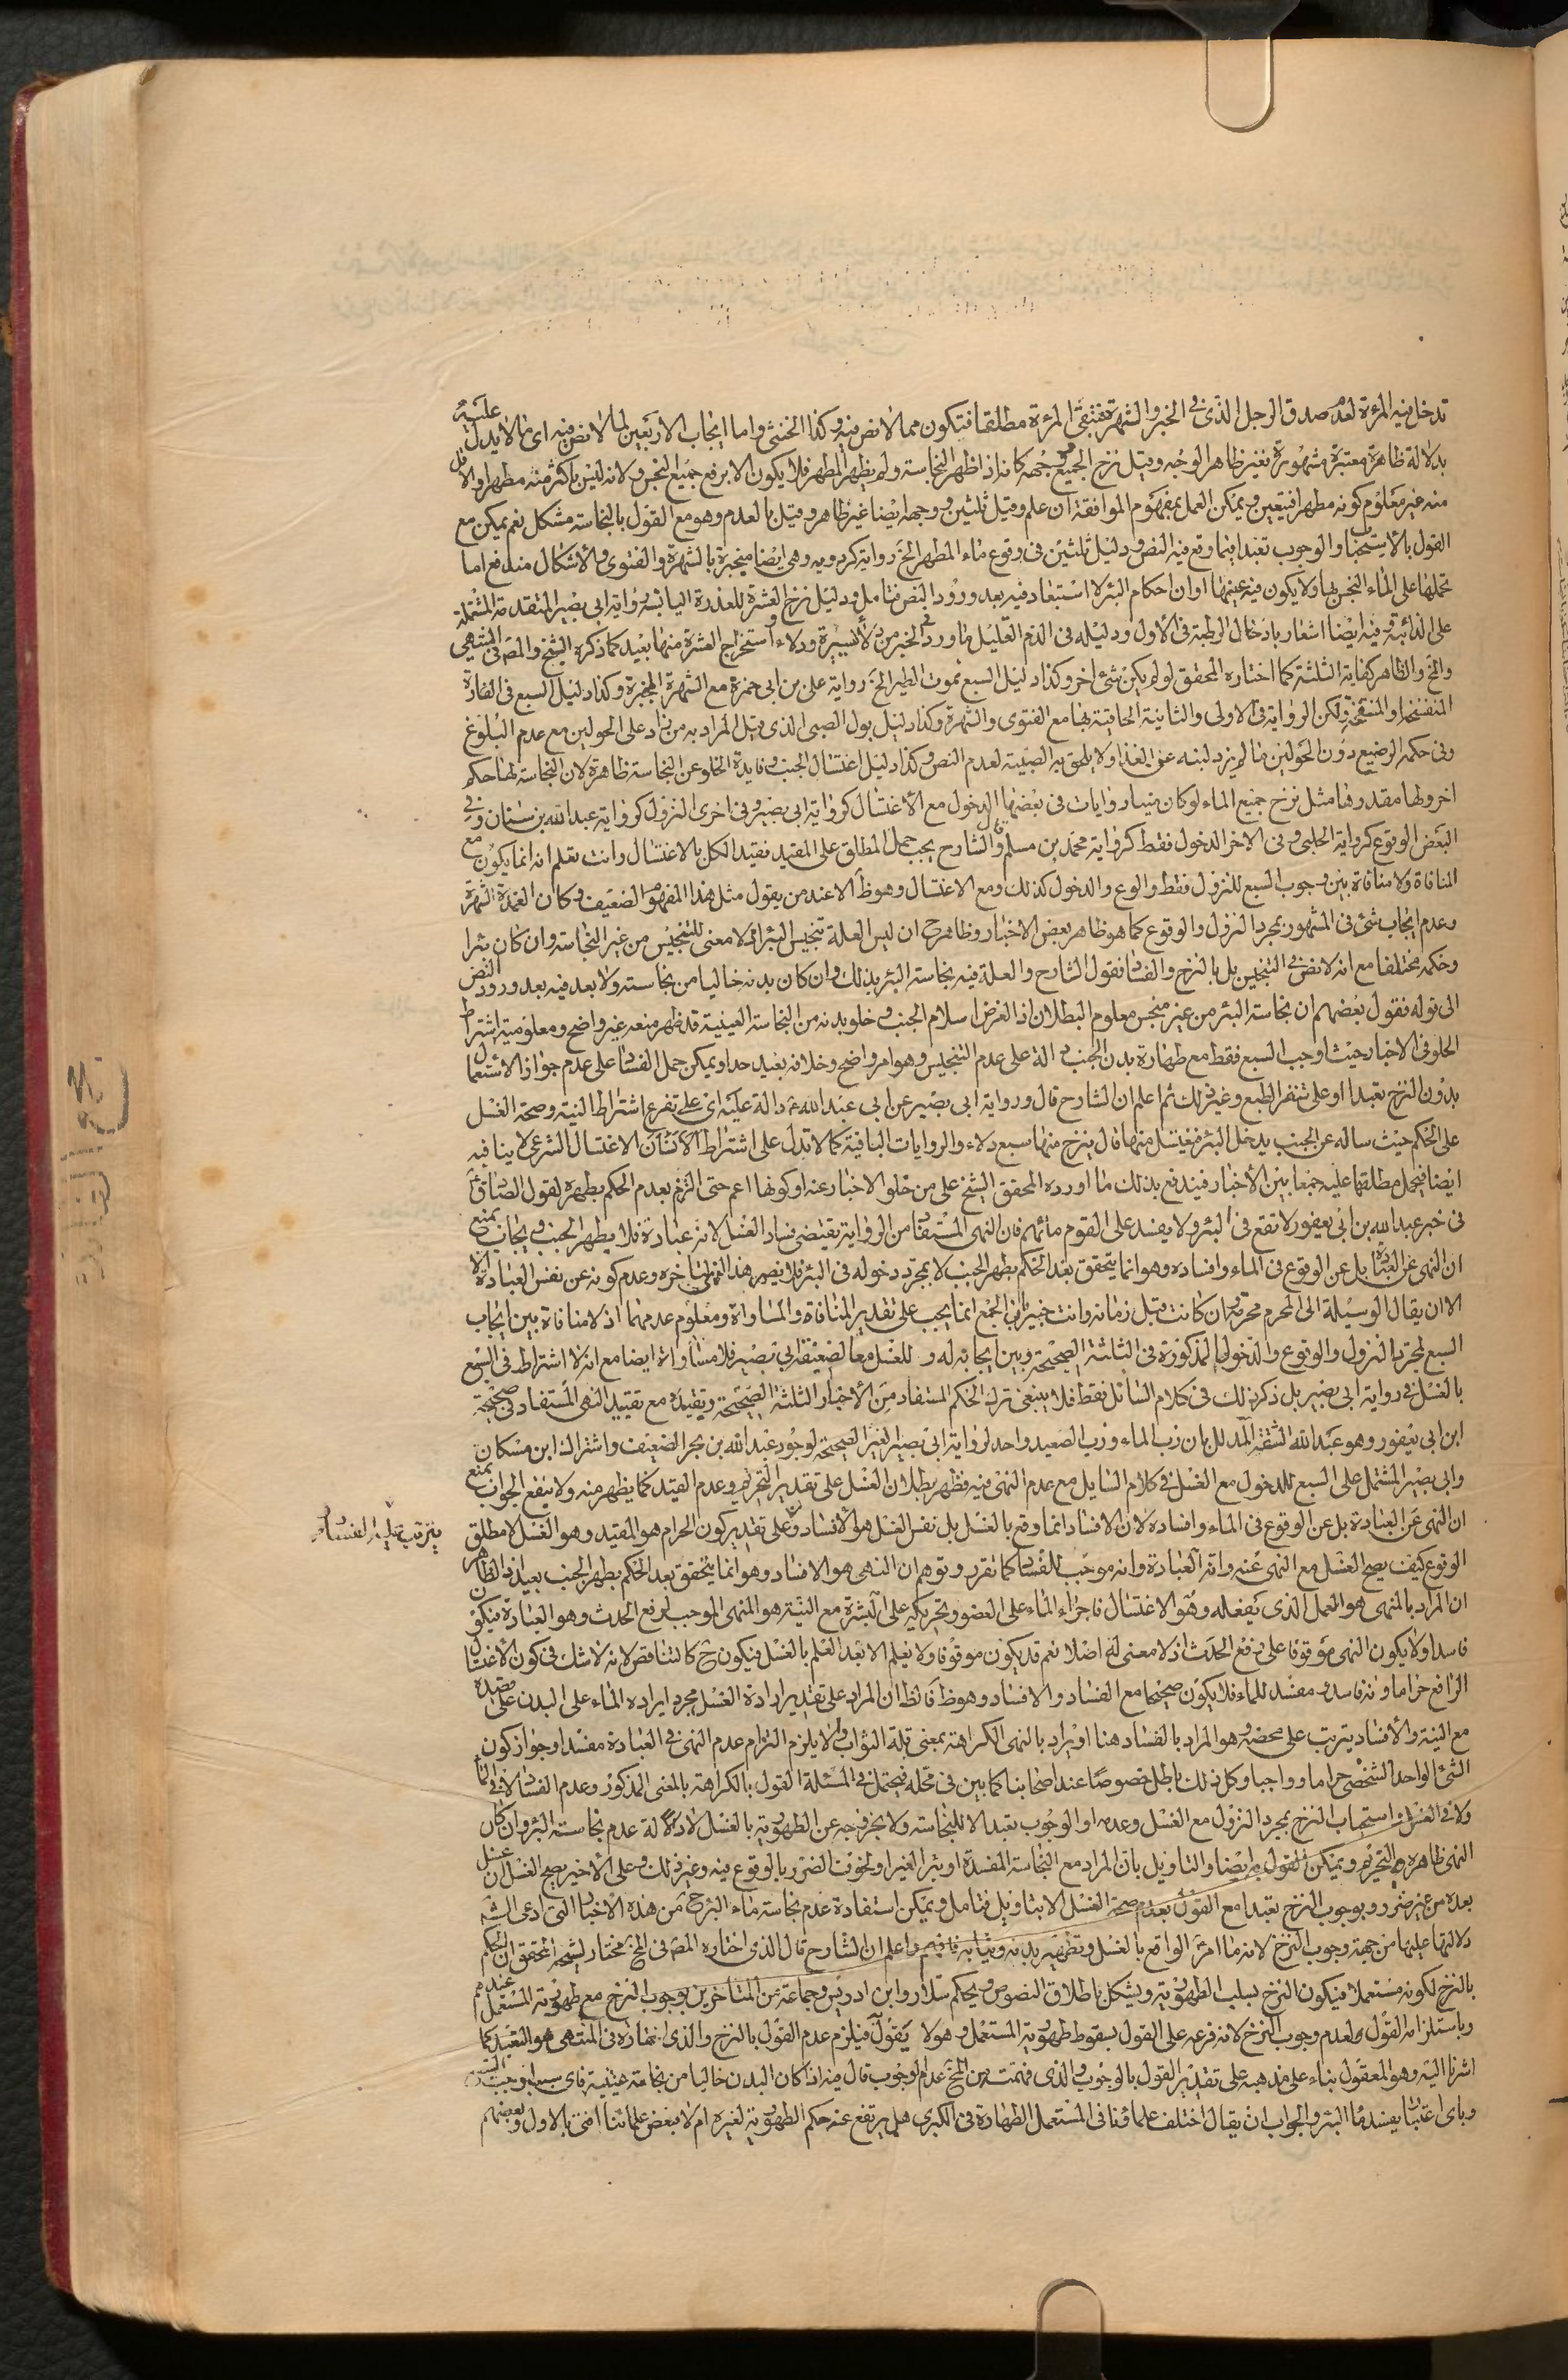 تدخل فيه المرءة لعدم صدق الرجل الذى فى الخبر والشهرة فتبقى المرءة مطلقا فتكون مما لا نص فيه وكذا الخنثى واما ايجاب الاربعين لما لا نص فيه اى ما لا يدل عليه
بدلالة ظاهرة معتبرة مشهورة فغير ظاهر الوجه وقيل نزح الجميع ووجهه كانه اذا ظهر النجاسة ولم يظهر المطهر فلا يكون الا برفع جميع النجس ولانه ليس باكثر منه مطهرا والاقل
منه غير معلوم كونه مطهرا فيتعين ويمكن العمل بمفهوم الموافقة ان علم وقيل ثلثين ووجهه ايضا غير ظاهر وقيل بالعدم وهو مع القول بالنجاسة مشكل نعم يمكن مع
القول بالاستحباب او الوجوب تعبدا فيما وقع فيه النص ودليل ثلثين فى وقوع ماء المطهر الخ رواية كردويه وهى ايضا منجبرة بالشهرة والفتوى والاشكال مندفع اما
بحملها على الماء النجس بها ولا يكون فيه عينها او ان احكام البئر لا استبعاد فيه بعد ورود النص فتامل ودليل نزح العشرة للعذرة اليابسة رواية ابى بصير المتقدمة المشتملة
على الذائبة وفيه ايضا اشعار بادخال الرطبة فى الاول ودليله فى الدم القليل ما ورد فى الخبر من دلاء يسيرة ودلاء واستخراج العشرة منها بعيد كما ذكره الشيخ والمص فى المنتهى
والمخ والظاهر كفاية الثلثة كما اختاره المحقق لو لم يكن شئ اخر وكذا دليل السبع لموت الطير الخ رواية على بن ابى حمزة مع الشهرة المجبرة وكذا دليل السبع فى الفارة
المتفسخة او المنتفخة ولكن الرواية فى الاولى والثانية الحاقية بها مع الفتوى والشهرة وكذا دليل بول الصبى الذى قيل المراد به من زاد على الحولين مع عدم البلوغ
وفى حكمه الرضيع دون الحولين ما لم يزد لبنه عن الغذا ولا يلحق به الصبية لعدم النص وكذا دليل اغتسال الجنب وفايدة الخلو عن النجاسة ظاهرة لان النجاسة لها حكم
اخر ولها مقدر وها مثل نزح جميع الماء لو كان منيا وروايات فى بعضها الدخول مع الاغتسال كرواية ابى بصير وفى اخرى النزول كرواية عبد الله بن سنان وفى
البعض الوقوع كرواية الحلبى وفى الاخر الدخول فقط كرواية محمد بن مسلم قال الشارح يجب حمل المطلق على المقيد فقيد الكل بالاغتسال وانت تعلم انه انما يكون مع
المنافاة ولا منافاة بين وجوب السبع للنزول فقط والوقوع والدخول كذلك ومع الاغتسال وهو ظ الا عند من يقول مثل هذا المفهوم الضعيف وكان العمدة الشهرة
وعدم ايجاب شئ فى المشهور بمجرد النزول والوقوع كما هو ظاهر بعض الاخبار وظاهر ح ان ليس العلة تنجيس البئر اذ لا معنى للتنجيس من غير النجاسة وان كان بئرا
وحكمه مختلفا مع انه لا نص فى التنجيس بل بالنزح والفساد فقول الشارح والعلة فيه نجاسة البئر بذلك وان كان بدنه خاليا من نجاسته ولا بعد فيه بعد ورود النص
الى قوله فقول بعضهم ان نجاسة البئر من غير منجس معلوم البطلان اذ الغرض اسلام الجنب وخلو بدنه من النجاسة العينية قد ظهر منعه غير واضح ومعلومية اشتراط
الخلو فى الاخبار حيث اوجب السبع فقط مع طهارة بدن الجنب دالة على عدم التنجيس وهو امر واضح وخلافه بعيد جدا ويمكن حمل الفساد على عدم جواز الاستعمال
بدون النزح تعبدا او على تنفر الطبع وغير ذلك ثم اعلم ان الشارح قال ورواية ابى بصير عن ابى عبد الله ع دالة عليه اى على تفرع اشتراط النية وصحة الغسل
على الحكم حيث ساله عن الجنب يدخل البئر فيغتسل منها قال ينزح منها سبع دلاء والروايات الباقية كما لا تدل على اشتراط الاغتسال الشرعى لا ينافيه
ايضا فيحمل مطلقها عليه جمعا بين الاخبار فيندفع بذلك ما اورده المحقق الشيخ على من خلو الاخبار عنه او كونها اعم حتى التزم بعدم الحكم بطهره لقول الصادق ع
فى خبر عبد الله بن ابى يعفور لا تقع فى البئر ولا تفسد على القوم مائهم فان النهى المستفاد من الرواية يقتضى فساد الغسل لانه عبادة فلا يطهر الجنب ويجاب بمنع
ان النهى عن العبادة بل عن الوقوع فى الماء وافساده وهو انما يتحقق بعد الحكم بطهر الجنب لا بمجرد دخوله فى البئر فلا يضر هذا النهى لتاخره وعدم كونه عن نفس العبادة الا
الا ان يقال الوسيلة الى المحرم محرمة وان كانت قبل زمانه وانت خبير بان الجمع انما يجب على تقدير المنافاة والمساواة ومعلوم عدمهما اذ لا منافاة بين ايجاب
السبع لمجرد النزول والوقوع والدخول المذكورة فى الثلثة الصحيحة وبين ايجابه له وللغسل معا لضعف ابى بصير فلا مساواة ايضا مع انه لا اشتراط فى السبع
بالغسل فى رواية ابى بصير بل ذكر ذلك فى كلام السائل فقط فلا ينبغى ترك الحكم المستفاد من الاخبار الثلثة الصحيحة وتقييده مع تقييد النهى المستفاد فى صحيحة
ابن ابى يعفور وهو عبد الله الثقة المدلل بان رب الماء ورب الصعيد واحد لرواية ابى بصير الغير الصحيحة لوجود عبد الله بن بحر الضعيف واشتراك ابن مسكان
وابى بصير المشتمل على السبع للدخول مع الغسل فى كلام السايل مع عدم النهى فيه فظهر بطلان الغسل على تقدير التحريم وعدم القيد كما يظهر منه ولا ينفع الجواب بمنع
ان النهى عن العبادة بل عن الوقوع فى الماء وافساده لان الافساد انما وقع بالغسل بل نفس الغسل هو الافساد وعلى تقدير كون الحرام هو المقيد وهو الغسل لا مطلق
يترتب عليه الفساد
الوقوع كيف يصح الغسل مع النهى عنه وانه العبادة وانه موجب للفساد كما تقرر وتوهم ان النهى هو الافساد وهو انما يتحقق بعد الحكم بطهر الجنب بعيد اذ الظاهر
ان المراد بالمنهى هو العمل الذى يفعله وهو الاغتسال فاجراء الماء على العضو وتحريكه على البشرة مع النية هو المنهى الموجب لرفع الحدث وهو العبادة فيكون
فاسدا ولا يكون النهى موقوفا على رفع الحدث اذ لا معنى له اصلا نعم قد يكون موقوفا ولا يعلم الا بعد العلم بالغسل فيكون ح كالمتناقض لانه لا شك فى كون الاغتسال
الرافع حراما وانه فاسد ومفسد للماء فلا يكون صحيحا مع الفساد والافساد وهو ظ فالظ ان المراد على تقدير ارادة الغسل مجرد ايراده الماء على البدن على قصده
مع النية والافساد يترتب على محضه وهو المراد بالفساد هنا او يراد بالنهى الكراهة بمعنى قلة الثواب ولا يلزم التزام عدم النهى فى العبادة مفسدا وجواز كون
الشئ الواحد الشخصى حراما وواجبا وكل ذلك باطل خصوصا عند اصحابنا كما بين فى محله فيحتمل فى المسئلة القول بالكراهة بالمعنى المذكور وعدم الفساد لا فى الماء
ولا فى الغسل واستحباب النزح بمجرد النزول مع الغسل وعدمه او الوجوب تعبدا لا للنجاسة ولا بخروجه عن الطهورية بالغسل لادلة عدم نجاسة البئر وان كان
النهى ظاهره التحريم ويمكن القول به ايضا والتاويل بان المراد مع النجاسة المفسدة او بئر الغير او لخوف الضرر بالوقوع فيه وغير ذلك وعلى الاخير يصح الغسل ان غسل
بعده من غير ضرر وبوجوب النزح تعبدا مع القول بعدم صحة الغسل الا بتاويل فتامل ويمكن استفادة عدم نجاسة ماء البئر ح من هذه الاخبار التى ادعى الشه
دلالتها عليها من جهة وجوب النزح لانه ما امر الواقع بالغسل وتطهير بدنه وثيابه فافهم واعلم ان الشارح قال الذى اختاره المص فى المخ مختار الشيخ المحقق ان الحكم
بالنزح لكونه مستعملا فيكون النزح لسلب الطهورية ويشكل باطلاق النصوص وبحكم سلار وابن ادريس وجماعة من المتاخرين بوجوب النزح مع طهورية المستعمل عندهم
وباستلزامه القول بعدم وجوب النزح لانه فرعه على القول بسقوط طهورية المستعمل وهو لا يقول فيلزم عدم القول بالنزح والذى اختاره فى المنتهى هو التعبد كما
اشرنا اليه وهو المعقول بناء على مذهبه على تقدير القول بالوجوب والذى فهمت من المخ عدم الوجوب قال فيه اذا كان البدن خاليا من نجاسة عينية فاى سبب اوجب
وباى اعتبار يفسد ماء البئر والجواب ان يقال اختلف علماؤنا فى المستعمل الطهارة فى الكبرى هل يرتفع عنه حكم الطهورية لغيره ام لا فبعض علمائنا افتى بالاول وبعضهم